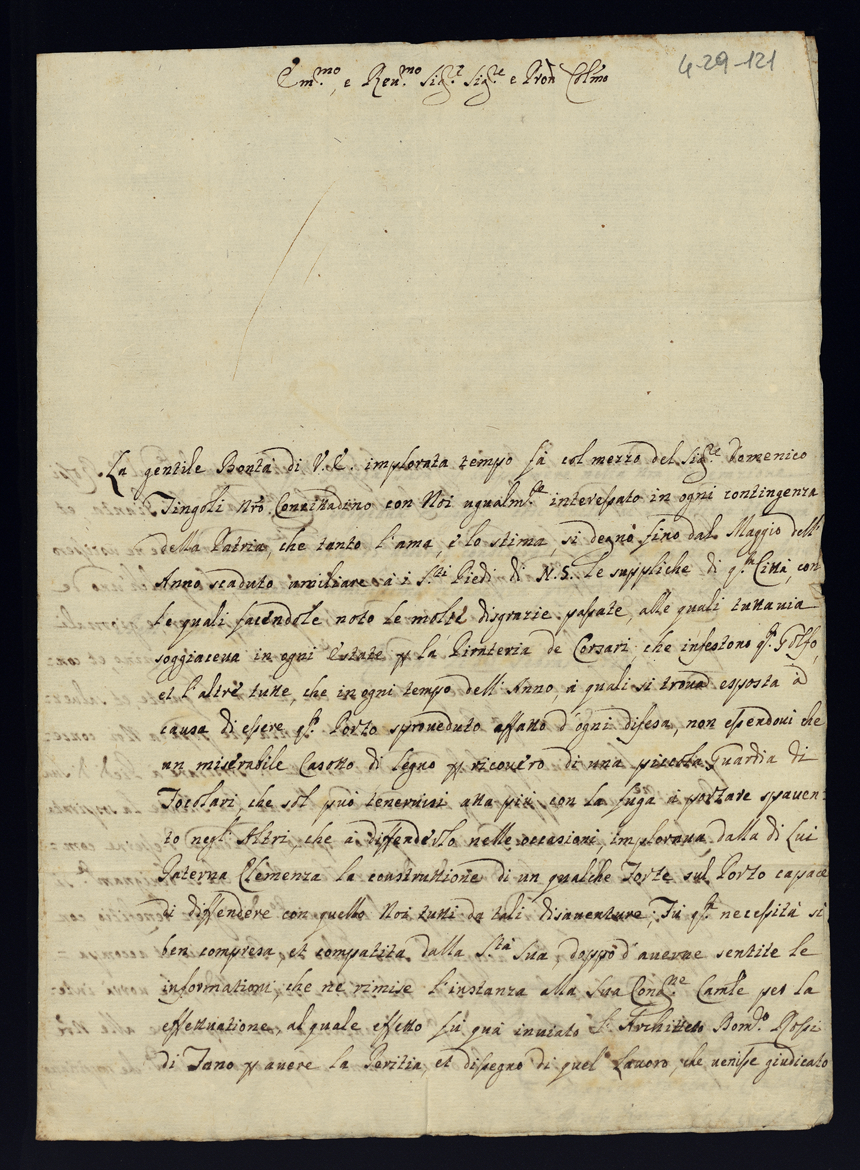 4-29-121
Em.mo, e Reu.mo Sig.r Sig.re e Pron Colmo
La gentile Bontà di V. E. implorata tempo fà col mezzo del Sig.re Domenico
Tingoli Nro Concittadino con Noi ugualm.te interessato in ogni contingenza
della Patria, che tanto l'ama, e lo stima, si degnò sino dal Maggio dell'
Anno scaduto umiliare à i S.ti Piedi di N. S. le suppliche di q.ta Città, con
le quali facendole noto le molte disgrazie passate, alle quali tuttauia
soggiaceua in ogni Estate p la Pirateria de Corsari, che infestono q.o Golfo,
et l'altre tutte, che in ogni tempo dell'Anno, à quali si troua esposta à
causa di essere q.o Porto sproueduto affatto d'ogni difesa, non essendoui che
un miserabile Casotto di legno p ricouero di una piccola Guardia di
che sol può tenersiui atta più con la fuga à portare spauen=
to negl'Altri, che à diffenderlo nelle occasioni, imploraua dalla di Lui
Paterna Clemenza la construttione di un qualche Forte sul Porto capace
di diffendere con quello Noi tutti da tali disauenture; Fù q.ta necessità sì
ben compresa, et compatita dalla S.tà Sua, doppo d'auerne sentite le
informationi, che ne rimise l'instanza alla Sua Cong.ne Camle per la
effettuatione, al quale effetto fù quà inuiato l'Architteto Bom.do Rossi
di Fano p auere la Peritia, et dissegno di quel Lauoro, che uenisse giudicato